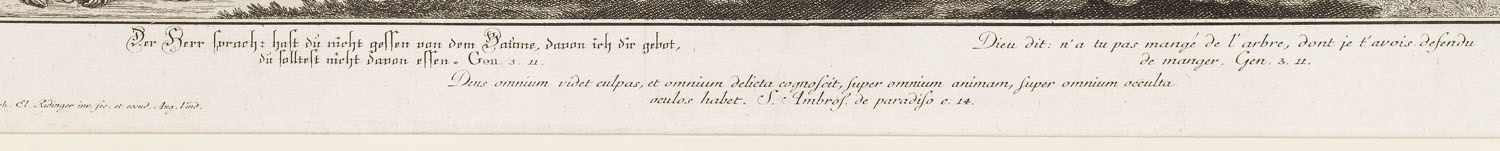 Der Herr sprach: hast du nicht gessen von dem Baume, davon ich dir gebot,
du solltest nicht davon essen. Gen. 3. 11.
Dieu dit: n'a tu pas mangé de l'arbre, dont je t'avois defendu
de manger. Gen. 3. 11.
Deus omnium videt culpas, et omnium delicta cognoscit, super omnium animam, super omnium occulta
oculos habet. S. Ambros. de paradiso c. 14.
El. Ridinger inv. fec. et excud. Aug. Vind.